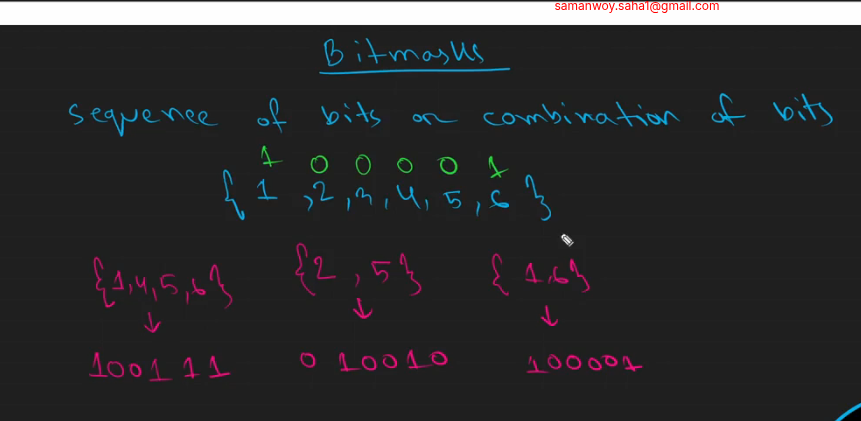 samanwoy.saha1@gmail.com
Bitmasks
sequence of bits or combination of bits
1 0 0 0 0 1
{ 1 , 2 , 3 , 4 , 5 , 6 }
{1,4,5,6} {2 , 5} { 1,6}
↓ ↓ ↓
100111 010010 100001